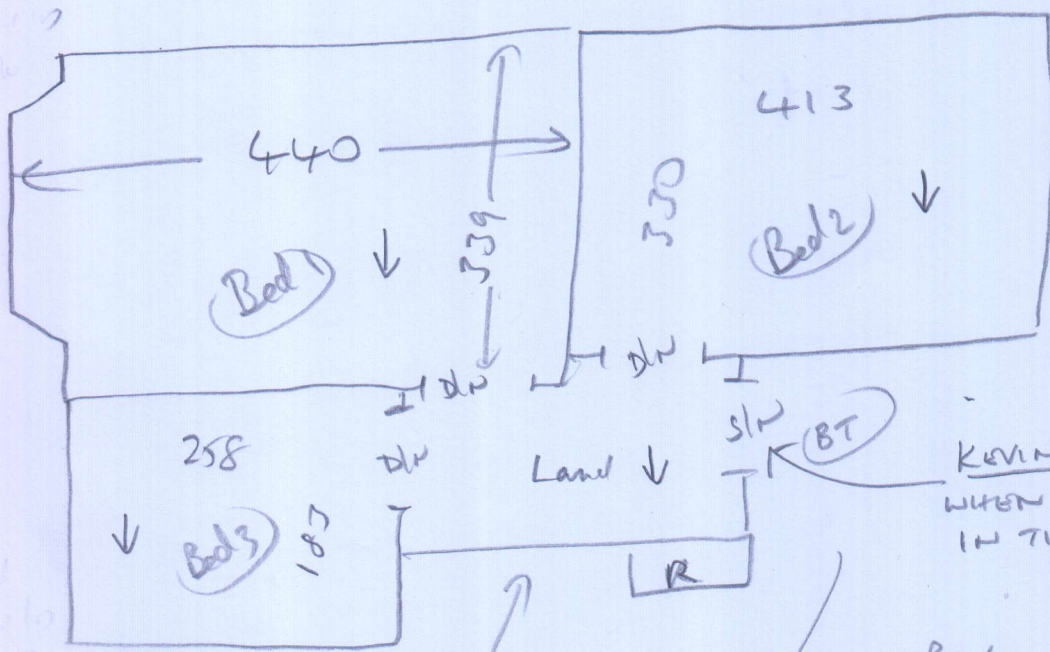 413
440
330
339
Bed1
Bed2
D/N
D/N
258
D/N
Land
S/N
BT
KEVIN
WHEN
Bed3
183
R